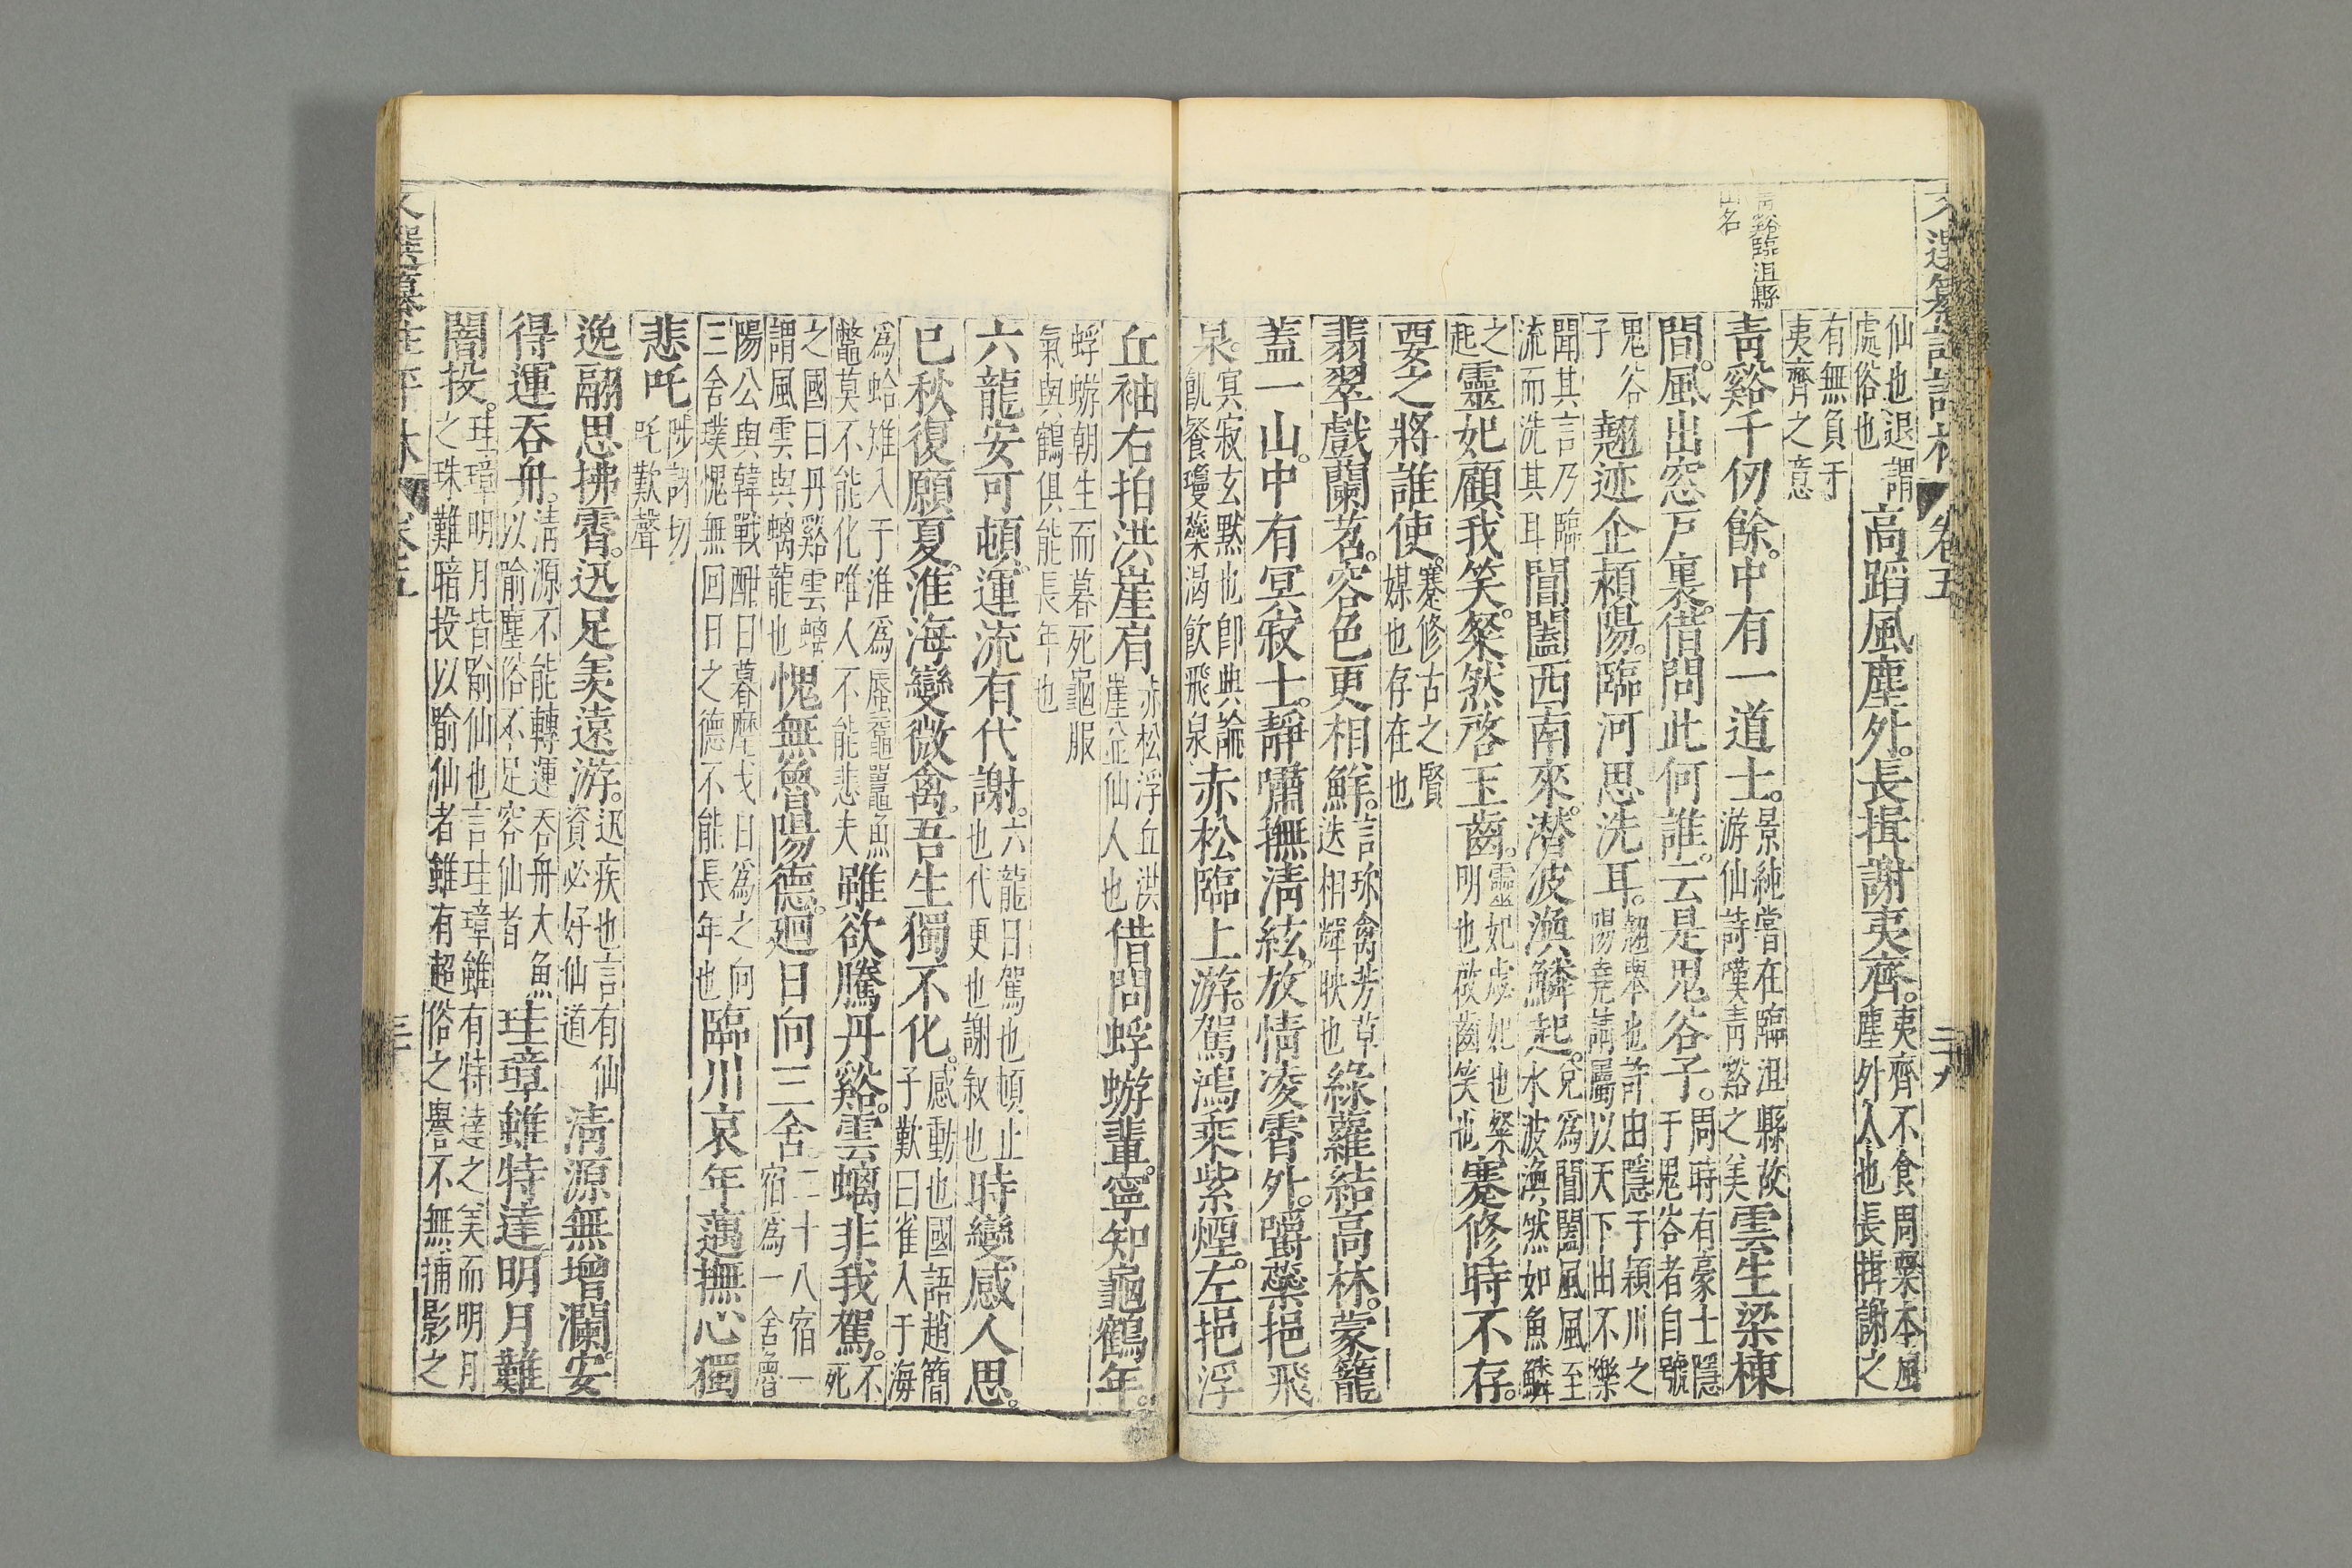 仙也退謂
處俗也
高蹈風塵外。長揖謝夷齊。
夷齊不食周粟本風
塵外人也長揖謝之
有無負于
夷齊之意
青谿千仞餘。中有一道士。
景純嘗在臨沮縣故
游仙詩嘆青谿之美
雲生梁棟
間。風出窓戸裏。借問此何誰。云是鬼谷子。
周時有豪士隱
于鬼谷者自號
鬼谷
子
翹迹企潁陽。臨河思洗耳。
翹舉也許由隱于穎川之
陽堯請屬以天下出不樂
聞其言乃臨
流而洗其耳
閶闔西南來。潜波渙鱗起。
兌為閶闔風風至
水波渙然如魚鱗
之
起
靈妃顧我笑。粲然啓玉齒。
靈妃虙妃也粲
明也啟齒笑也
蹇修時不存。
要之將誰使。
蹇修古之賢
媒也存在也
翡翠戲蘭苕。容色更相鮮。
言珍禽芳草
迭相輝映也
綠蘿結高林。蒙籠
蓋一山。中有冥寂士。靜嘯撫清絃。放情凌霄外。嚼蘂挹飛
泉。
冥寂玄默也卽典論
飢餐瓊蘂渴飲飛泉
赤松臨上游。駕鴻乘紫煙。左挹浮
青谿臨沮縣
山名
卷五
丘袖右拍洪崖肩
赤松浮丘洪
崖並仙人也
借問蜉蝣輩。寧知龜鶴年。
蜉蝣朝生而暮死龜服
氣與鶴俱能長年也
六龍安可頓。運流有代謝。
六龍日駕也頓止
也代更也謝叙也
時變感人思。
已秋復願夏。淮海變微禽。吾生獨不化。
感動也國語趙簡
子歎曰雀入于海
為蛤雉入于淮為蜃黿鼉魚
鱉莫不能化唯人不能悲夫
雖欲騰丹谿。雲螭非我駕。
不
死
之國曰丹谿雲螭
謂風雲與螭龍也
愧無魯陽德。廻日向三舍。
二十八宿一
宿為一舍魯
陽公與韓戰酣日暮麾戈日為之向
三舍璞愧無回日之德不能長年也
臨川哀年邁撫心獨
悲吒
陟詐切
吒歎聲
逸翮思拂霄。迅足羨遠游。
迅疾也言有仙
資必好仙道
清源無增瀾。安
得運吞舟。
清源不能轉運吞舟大魚
以喻塵俗不足容仙者
珪璋雖特達明月難
闇投。
珪璋明月皆喻仙也言珪璋雖有特達之美而明月
之珠難暗投以喻仙者雖有超俗之譽不無捕影之
卷五